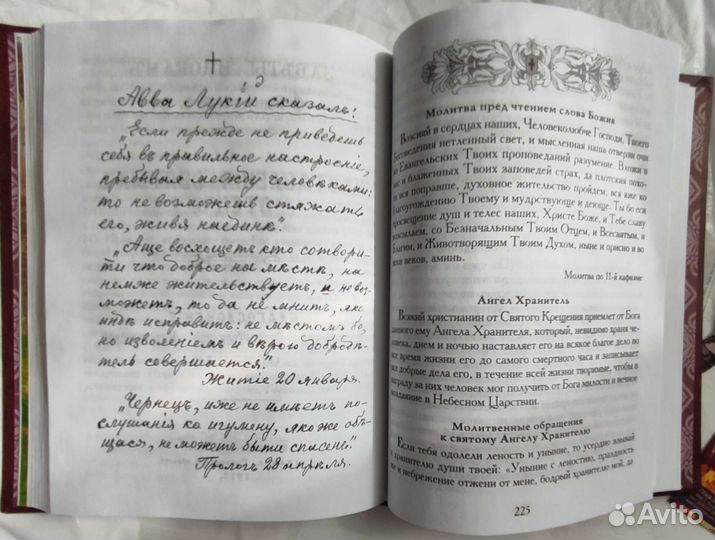 Авва Лукій сказалъ:
„Если прежде не приведешь
себя въ правильное настроеніе,
пребывая между человѣками:
то не возможешь стяжать
его, живя наединѣ".
„Аще восхощетъ кто сотвори-
ти что доброе на мѣстѣ, на
немже жительствуетъ, и не воз-
можетъ, то да не мнитъ, яко
индѣ исправитъ: не мѣстомъ бо,
но изволеніемъ и вѣрою доброде-
тель совершается".
Житіе 20 января.
„Чернецъ, иже не имѣетъ по-
слушанія ко игумену, якоже обѣ-
щася, не можетъ быти спасенъ".
Прологъ 28 апрѣля.
Молитва пред чтением слова Божия
Возсияй в сердцах наших, Человеколюбче Господи, Твоего
Боговедения нетленный свет, и мысленная наша отверзи очи
во Евангельских Твоих проповеданий разумение. Вложи в
нас и блаженных Твоих заповедей страх, да плотския похо-
ти вся поправше, духовное жительство пройдем, вся яже ко
благоугождению Твоему и мудрствующе и деюще. Ты бо еси
просвещение душ и телес наших, Христе Боже, и Тебе славу
возсылаем, со Безначальным Твоим Отцем, и Всесвятым, и
Благим, и Животворящим Твоим Духом, ныне и присно и во
веки веков, аминь.
Молитва по 11-й кафизме
Ангел Хранитель
Всякий христианин от Святого Крещения приемлет от Бога
данного ему Ангела Хранителя, который, невидимо храня че-
ловека, днем и ночью наставляет его на всякое благое дело во
время жизни его до самого смертного часа и записывает
все добрые дела его, в течение всей жизни творимые, чтобы в
награду за них человек мог получить от Бога милости и вечное
воздаяние в Небесном Царствии.
Молитвенные обращения
к святому Ангелу Хранителю
Если тебя одолели леность и уныние, то усердно взывай
к хранителю души твоей: «Уныние с леностию, праздность
и небрежение отжени от мене, бодрый хранителю мой, да
225
Avito